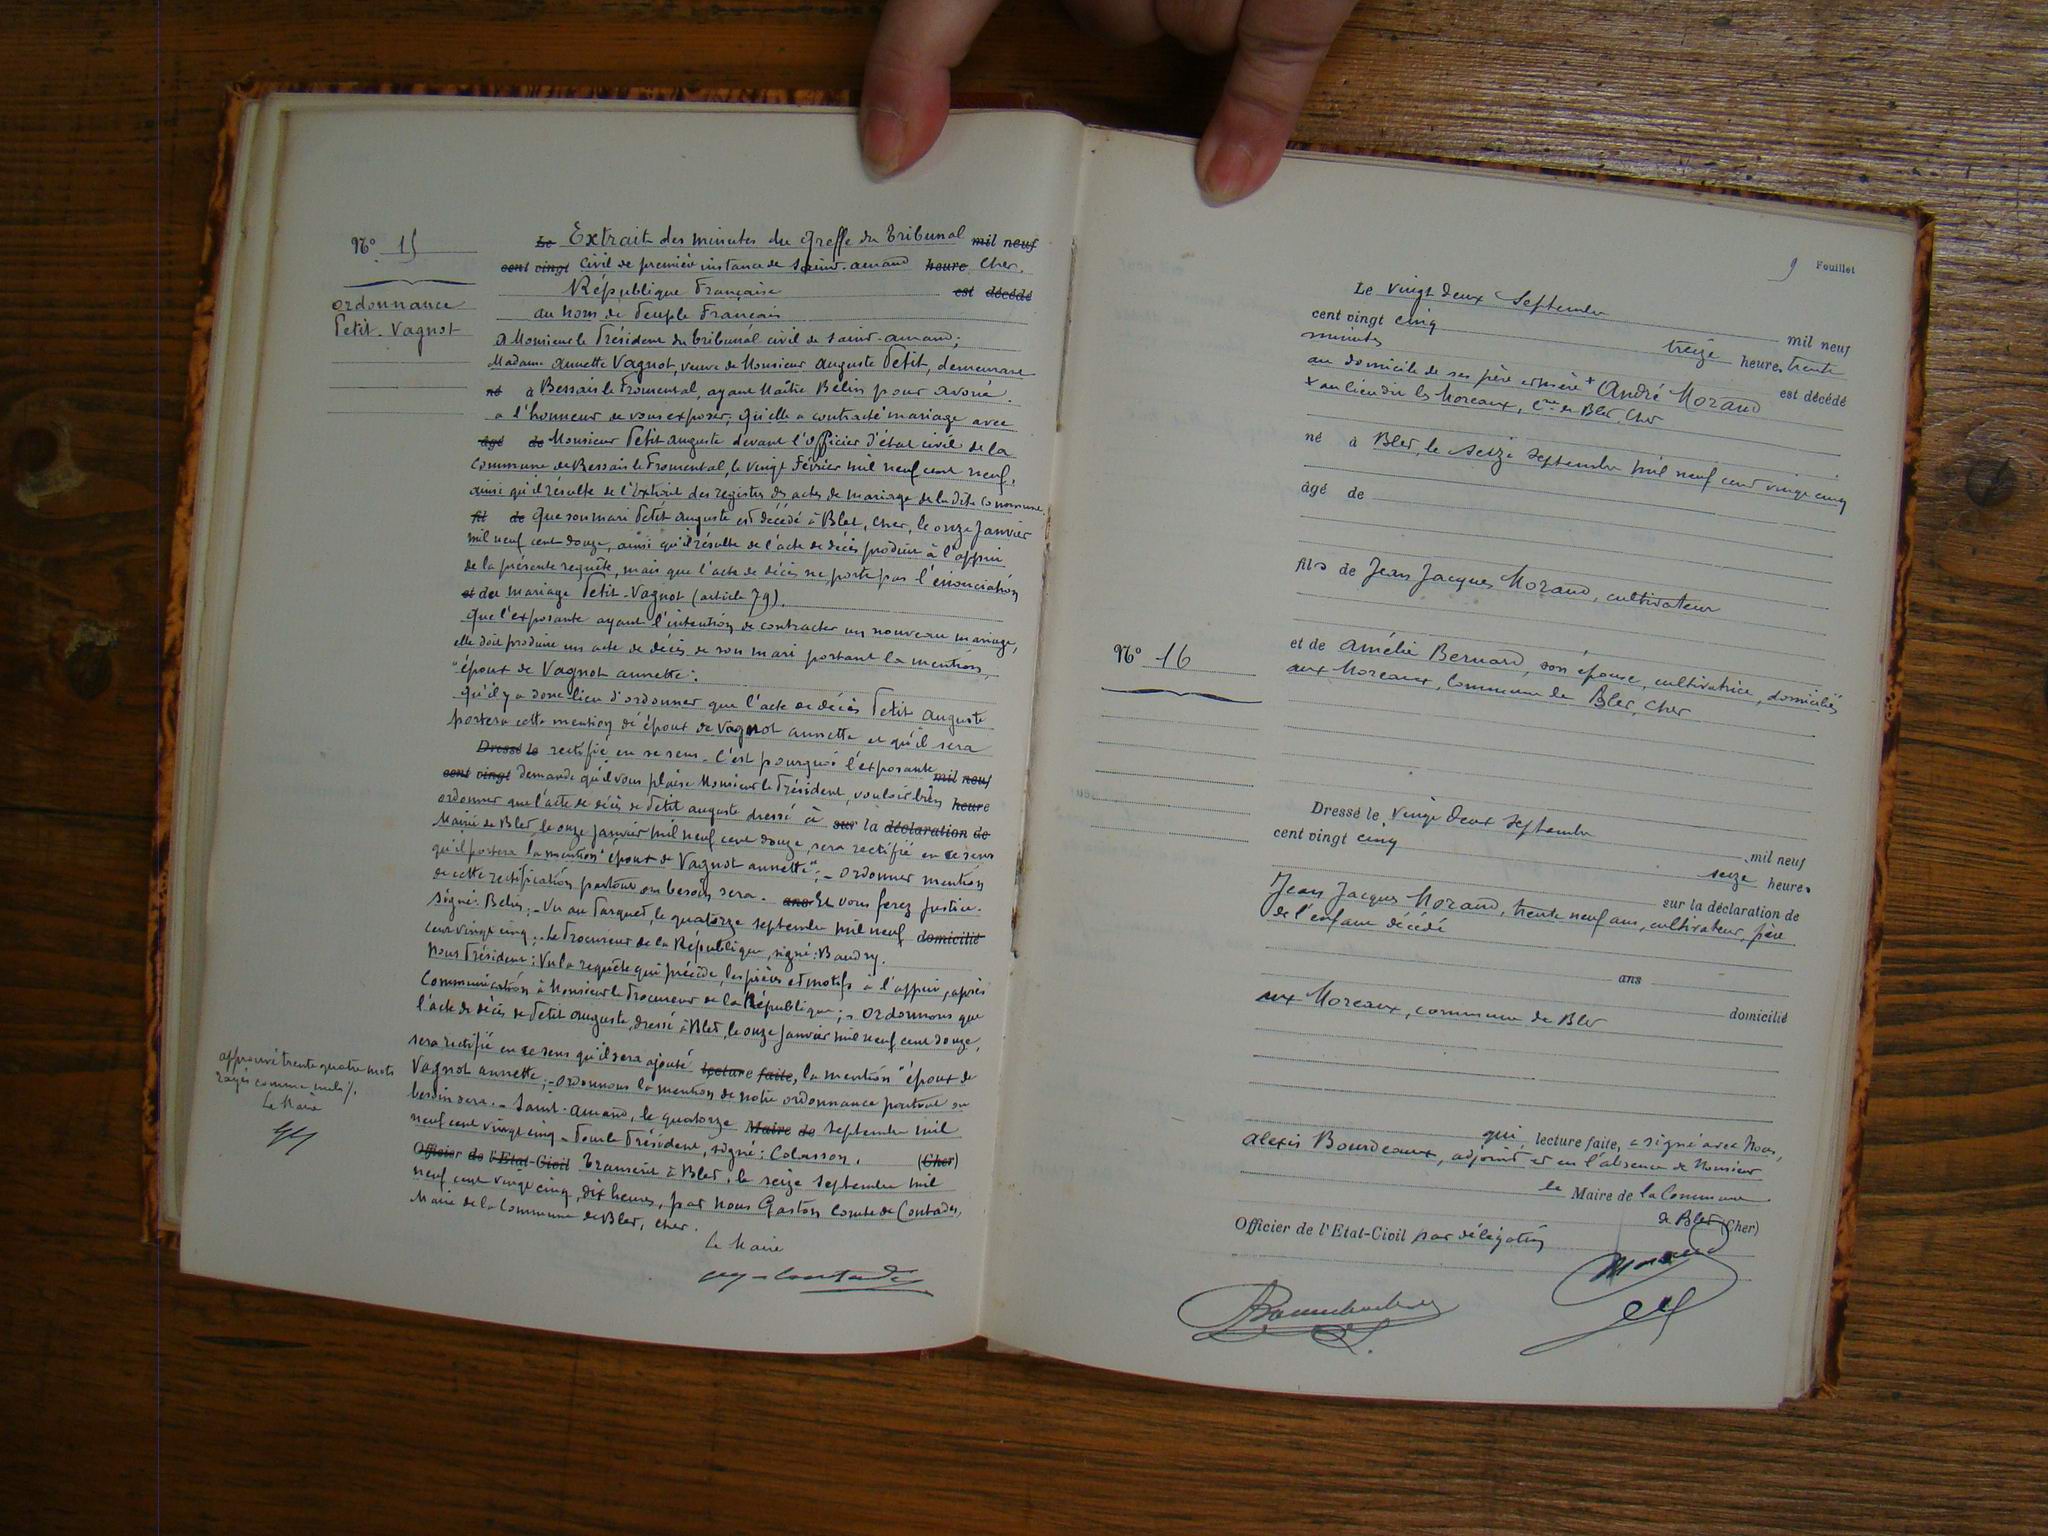 N° 15
ordonnance
Petit-Vagnot
Le Extrait des minutes du Greffe du Tribunal mil neuf
cent vingt civil de première instance de Saint-amand heure Cher.
République Française est décédé
au nom du Peuple Français
A Monsieur le Président du tribunal civil de Saint-amand;
Madame Annette Vagnot, veuve de Monsieur Auguste Petit, demeurant
né à Bessais le Fromental, ayant Maître Belin pour avoué.
a l'honneur de vous exposer; Qu'elle a contracté mariage avec
âgé de Monsieur Petit auguste devant l'officier d'état civil de la
commune de Bessais le Fromental, le vingt Février mil neuf cent neuf,
ainsi qu'il résulte de l'extrait des registres des actes de mariage de la dite commune.
fil de Que son mari Petit auguste est décédé à Blet, Cher, le onze Janvier
mil neuf cent douze, ainsi qu'il résulte de l'acte de décès produit à l'appui
de la présente requête, mais que l'acte de décès ne porte pas l'énonciation
et de du mariage Petit-Vagnot (article 79).
Que l'exposante ayant l'intention de contracter un nouveau mariage,
elle doit produire un acte de décès de son mari portant la mention,
"époux de Vagnot annette".
Qu'il y a donc lieu d'ordonner que l'acte de décès Petit auguste
portera cette mention de époux de Vagnot annette et qu'il sera
Dressé le rectifié en ce sens. C'est pourquoi l'exposante mil neuf
cent vingt demande qu'il vous plaise Monsieur le Président, vouloir bien heure
ordonner que l'acte de décès de Petit auguste dressé à sur la déclaration de
Mairie de Blet, le onze Janvier mil neuf cent douze, sera rectifié en ce sens
qu'il portera la mention "époux de Vagnot annette"; - ordonner mention
de cette rectification partout où besoin sera. ans Et vous ferez Justice.
Signé: Belin; - Vu au Parquet, le quatorze septembre mil neuf domicilié
cent vingt cinq; - Le Procureur de la République, signé: Baudry.
Nous Président: Vu la requête qui précède, les pièces et motifs à l'appui, après
Communication à Monsieur le Procureur de la République; - Ordonnons que
l'acte de décès de Petit auguste, dressé à Blet, le onze Janvier mil neuf cent douze,
sera rectifié en ce sens qu'il sera ajouté lecture faite, la mention "époux de
Vagnot annette; - Ordonnons la mention de notre ordonnance partout où
besoin sera. - Saint-Amand, le quatorze Maire de septembre mil
neuf cent vingt cinq - Pour le Président, signé: Colasson. (Cher)
Officier de l'Etat-Civil Transcrit à Blet, le seize septembre mil
neuf cent vingt cinq, dix heures, par nous Gaston Comte de Contades,
Maire de la Commune de Blet, Cher.
Le Maire
approuvé trente quatre mots
rayés comme nuls %.
Le Maire
9 Feuillet
N° 16
Le vingt deux Septembre mil neuf
cent vingt cinq treize heures trente
minutes est décédé
au domicile de ses père et mère + André Morand
+ au lieu dit les Moreaux, Cne de Blet, Cher
né à Blet, le seize septembre mil neuf cent vingt cinq
âgé de
fils de Jean Jacques Morand, cultivateur
et de Amélie Bernard, son épouse, cultivatrice, domiciliés
aux Moreaux, Commune de Blet, Cher
Dressé le vingt deux septembre mil neuf
cent vingt cinq seize heures
sur la déclaration de
Jean Jacques Morand, trente neuf ans, cultivateur, père
de l'enfant décédé
ans
domicilié
aux Moreaux, commune de Blet
qui, lecture faite, a signé avec Nous,
alexis Bourdeaux, adjoint et en l'absence de Monsieur
le Maire de la Commune
de Blet (Cher)
Officier de l'Etat-Civil par délégation
Morand